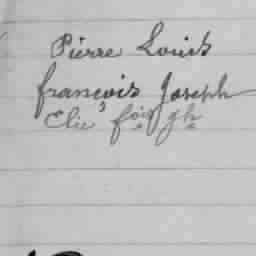 Pierre Louis
françois Joseph
Elie fois jh